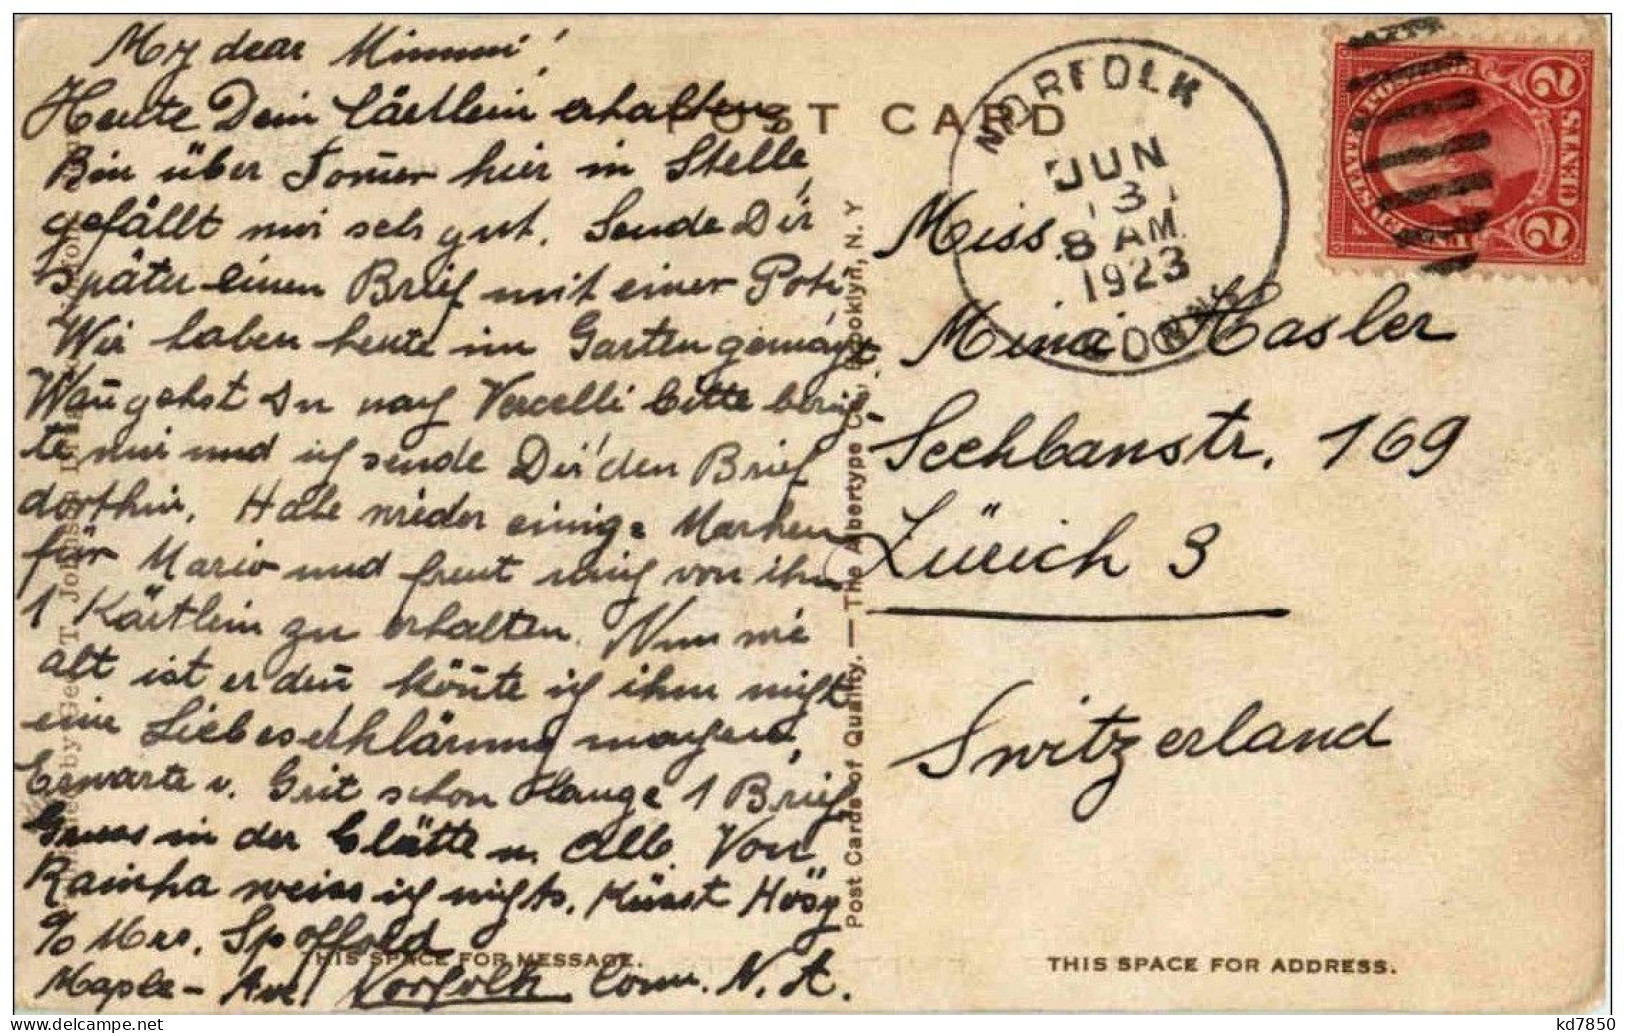 My dear Mimmi!
Heute Dein Cärtlein erhalten
Bin über Som̅er hier in Stelle
gefällt mir sehr gut. Sende Dir
später einen Brief mit einer Poto
Wir haben heute im Garten gemäht
Wan̅ gehst Du nach Vercelli bitte berich-
te mir und ich sende Dir den Brief
dorthin. Habe wieder einige Marken
für Mario und freut mich von ihm
1 Kärtlein zu erhalten. Nun wie
alt ist er den̅ kön̅te ich ihm nicht
eine Liebeserklärung machen,
Erwarte v. Grit schon lange 1 Brief
Gruss in der Glätte u. alle. Von
Rainha weiss ich nichts. Küsst Hösy
c/o Mrs. Spofford
Maple-Ave. Norfolk Conn. N. A.
POST CARD
NORFOLK
JUN
13
8 AM
1923
CONN
UNITED STATES POSTAGE
2 CENTS 2
Miss
Mina Hasler
Seehbanstr. 169
Zürich 3
Switzerland
Post Cards of Quality. — The Albertype Co., Brooklyn, N. Y.
THIS SPACE FOR MESSAGE.
THIS SPACE FOR ADDRESS.
kd7850